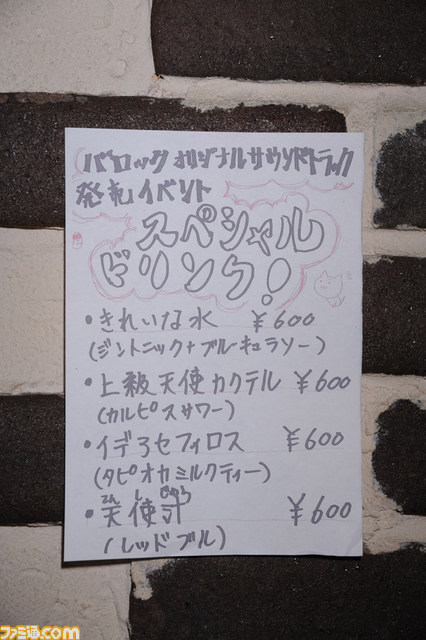 バロック オリジナルサウンドトラック
発売イベント
スペシャル
ドリンク!
・きれいな水 ¥600
(ジントニック+ブルーキュラソー)
・上級天使カクテル ¥600
(カルピスサワー)
・イデアセフィロス ¥600
(タピオカミルクティー)
・天使 ¥600
(レッドブル)
ファミ通.com